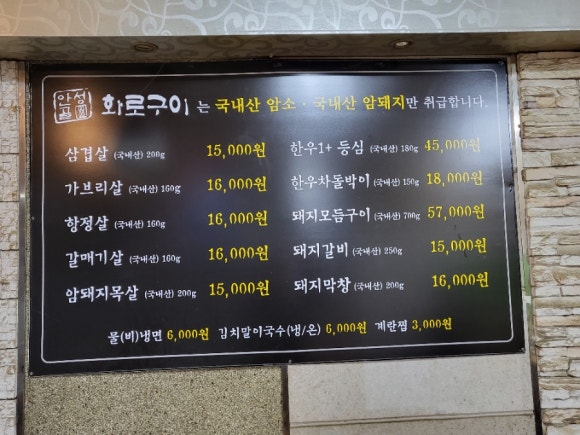 안성골 화로구이 는 국내산 암소 · 국내산 암돼지만 취급합니다.
삼겹살 (국내산) 200g 15,000원
가브리살 (국내산) 160g 16,000원
항정살 (국내산) 160g 16,000원
갈매기살 (국내산) 160g 16,000원
암돼지목살 (국내산) 200g 15,000원
한우1+ 등심 (국내산) 180g 45,000원
한우차돌박이 (국내산) 150g 18,000원
돼지모듬구이 (국내산) 700g 57,000원
돼지갈비 (국내산) 250g 15,000원
돼지막창 (국내산) 200g 16,000원
물(비)냉면 6,000원 김치말이국수(냉/온) 6,000원 계란찜 3,000원